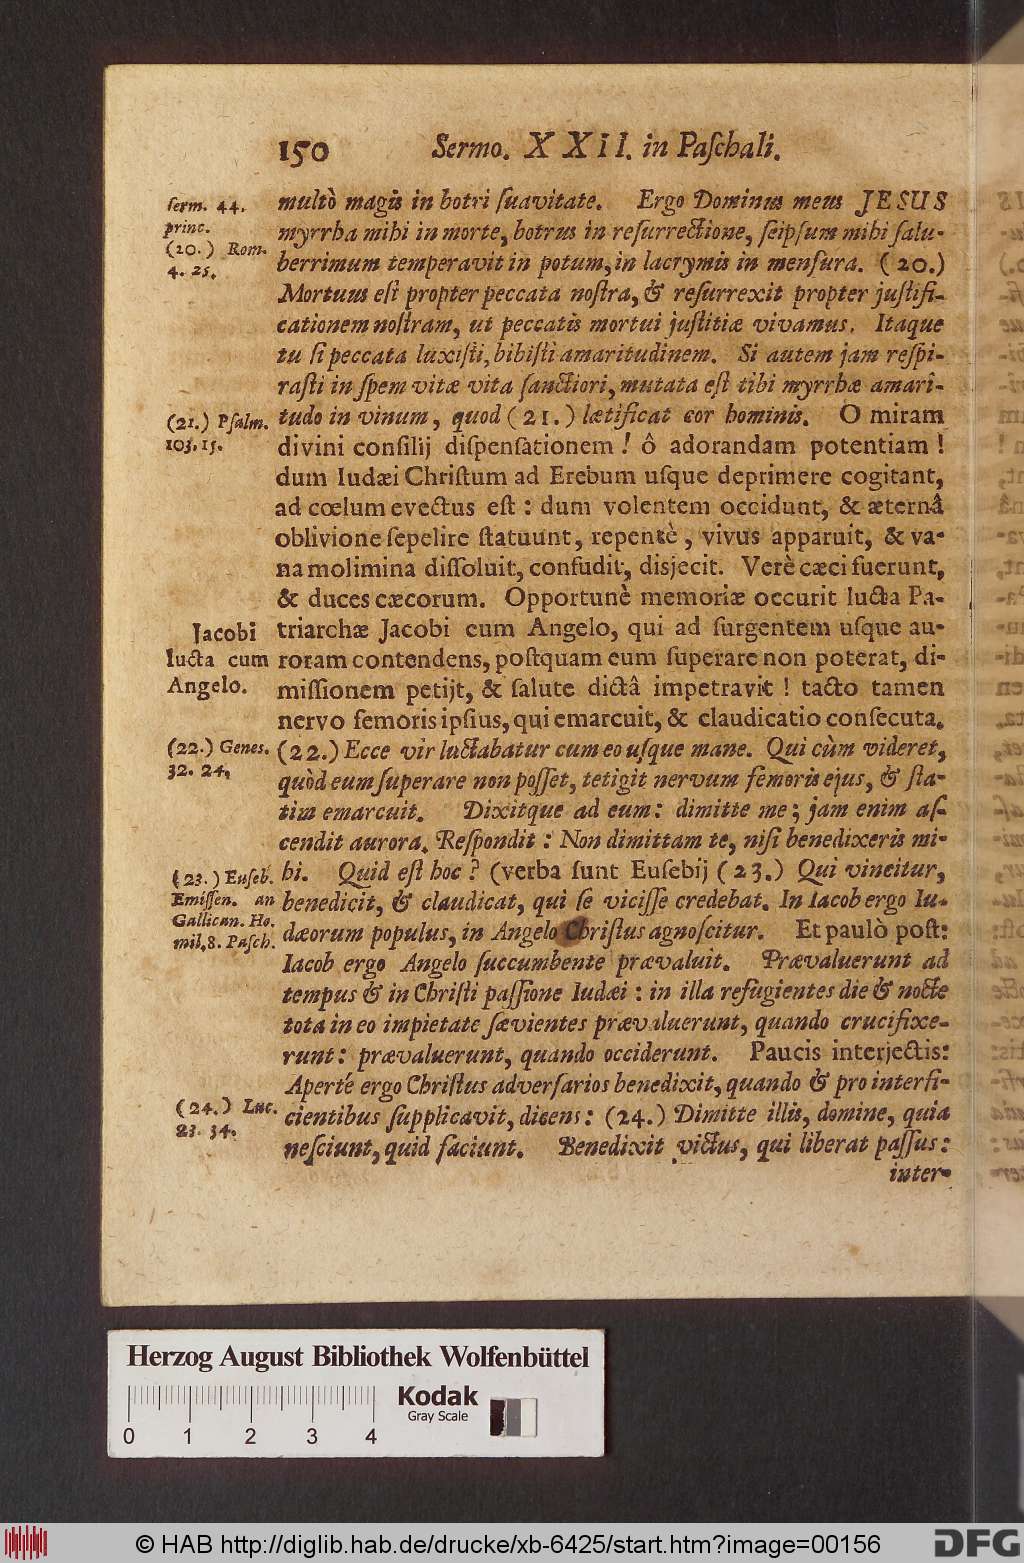 150 Sermo. XXII. in Paſchali.
ſerm. 44.
princ.
(20.) Rom.
4. 25.
(21.) Pſalm.
103. 15.
Jacobi
lucta cum
Angelo.
(22.) Geneſ.
32. 24.
(23.) Euſeb.
Emiſſen. an
Gallican. Ho.
mil. 8. Paſch.
(24.) Luc.
23. 34.
multò magis in botri ſuavitate. Ergo Dominus meus JESUS
myrrha mihi in morte, botrus in reſurrectione, ſeipſum mihi ſalu-
berrimum temperavit in potum, in lacrymis in menſura. (20.)
Mortuus eſt propter peccata noſtra, & reſurrexit propter juſtifi-
cationem noſtram, ut peccatis mortui juſtitiæ vivamus. Itaque
tu ſi peccata luxiſti, bibiſti amaritudinem. Si autem jam reſpi-
raſti in ſpem vitæ vita ſanctiori, mutata eſt tibi myrrhæ amari-
tudo in vinum, quod (21.) lætificat cor hominis. O miram
divini conſilij diſpenſationem! ô adorandam potentiam!
dum Iudæi Chriſtum ad Erebum uſque deprimere cogitant,
ad cœlum evectus eſt: dum volentem occidunt, & æternâ
oblivione ſepelire ſtatuunt, repentè, vivus apparuit, & va-
na molimina diſſoluit, confudit, disjecit. Verè cæci fuerunt,
& duces cæcorum. Opportunè memoriæ occurit lucta Pa-
triarchæ Jacobi cum Angelo, qui ad ſurgentem uſque au-
roram contendens, poſtquam eum ſuperare non poterat, di-
miſſionem petijt, & ſalute dictâ impetravit! tacto tamen
nervo femoris ipſius, qui emarcuit, & claudicatio conſecuta.
(22.) Ecce vir luctabatur cum eo uſque mane. Qui cùm videret,
quòd eum ſuperare non poſſet, tetigit nervum femoris ejus, & ſta-
tim emarcuit. Dixitque ad eum: dimitte me; jam enim aſ-
cendit aurora. Reſpondit: Non dimittam te, niſi benedixeris mi-
hi. Quid eſt hoc? (verba ſunt Euſebij (23.) Qui vincitur,
benedicit, & claudicat, qui ſe viciſſe credebat. In Iacob ergo Iu-
dæorum populus, in Angelo Chriſtus agnoſcitur. Et paulò poſt:
Iacob ergo Angelo ſuccumbente prævaluit. Prævaluerunt ad
tempus & in Chriſti paſſione Iudæi: in illa refugientes die & nocte
tota in eo impietate ſævientes prævaluerunt, quando crucifixe-
runt: prævaluerunt, quando occiderunt. Paucis interjectis:
Aperté ergo Chriſtus adverſarios benedixit, quando & pro interfi-
cientibus ſupplicavit, dicens: (24.) Dimitte illis, domine, quia
neſciunt, quid faciunt. Benedixit victus, qui liberat paſſus:
inter-
Herzog August Bibliothek Wolfenbüttel
Kodak
Gray Scale
0 1 2 3 4
© HAB http://diglib.hab.de/drucke/xb-6425/start.htm?image=00156
DFG